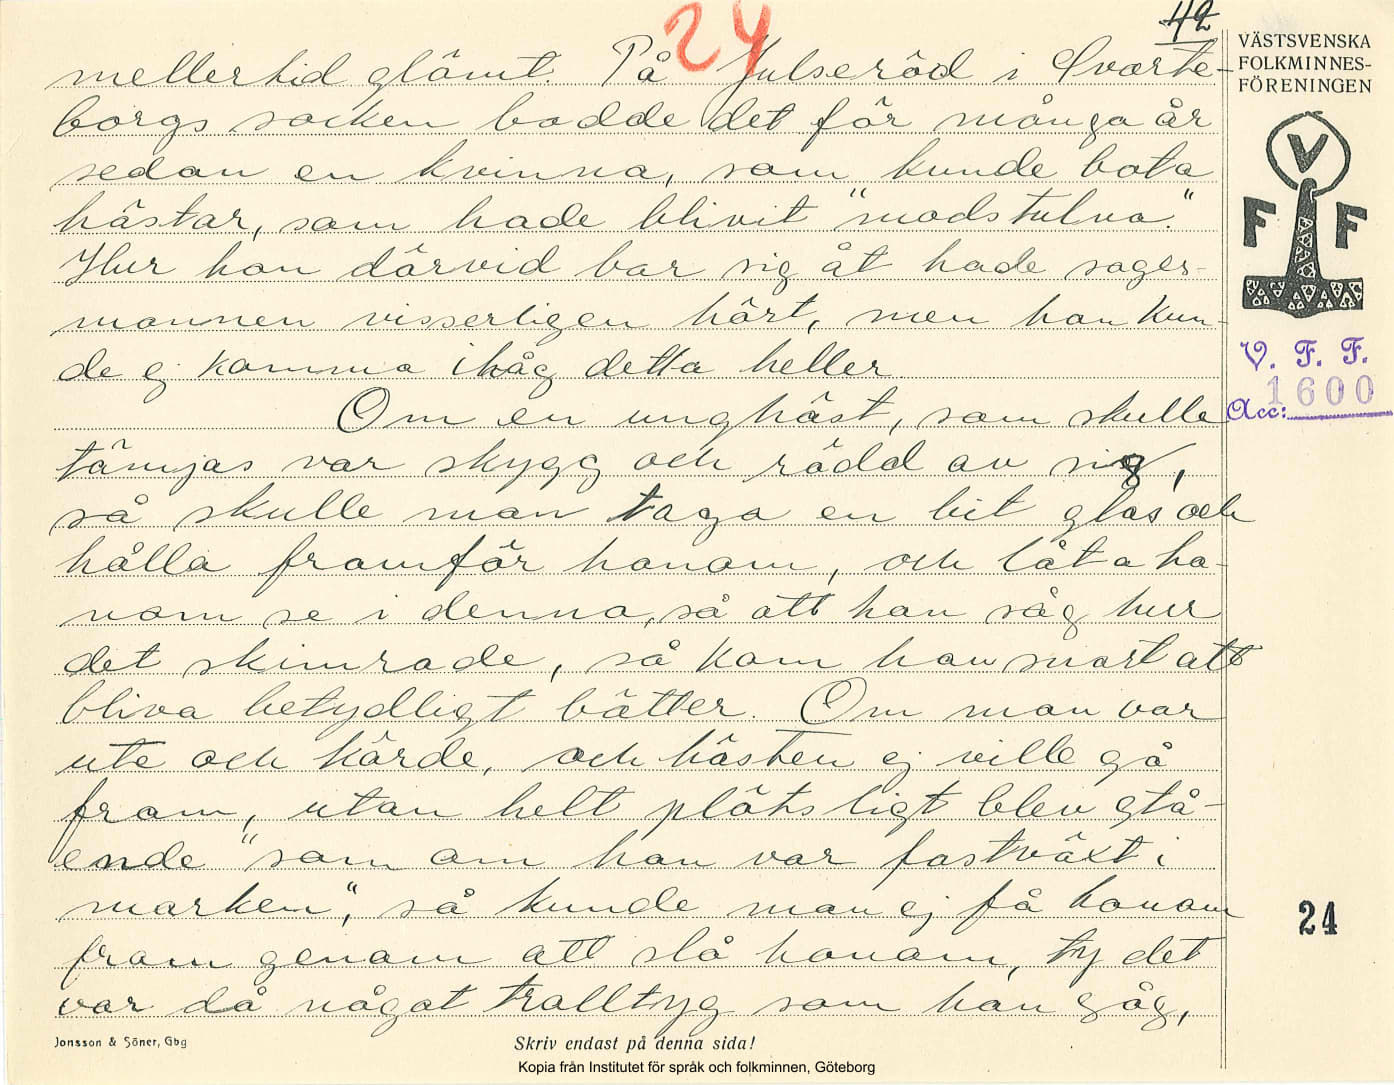 42
24
VÄSTSVENSKA
FOLKMINNES-
FÖRENINGEN
V
F F
V. F. F.
Acc: 1600
mellertid glömt. På Julseröd i Svarte-
borgs socken bodde det för många år
sedan en kvinna, som kunde bota
hästar, som hade blivit "modstulna."
Hur hon därvid bar sig åt hade sages-
mannen visserligen hört, men han kun-
de ej komma ihåg detta heller.
Om en unghäst, som skulle
tämjas var skygg och rädd av sig,
så skulle man taga en bit glas och
hålla framför honom, och låta ho-
nom se i denna, så att han såg hur
det skimrade, så kom han snart att
bliva betydligt bätter. Om man var
ute och körde, och hästen ej ville gå
fram, utan helt plötsligt blev stå-
ende "som om han var fastväxt i
marken", så kunde man ej få honom
fram genom att slå honom, ty det
var då något trolltyg som han såg,
24
Jonsson & Söner, Gbg
Skriv endast på denna sida!
Kopia från Institutet för språk och folkminnen, Göteborg